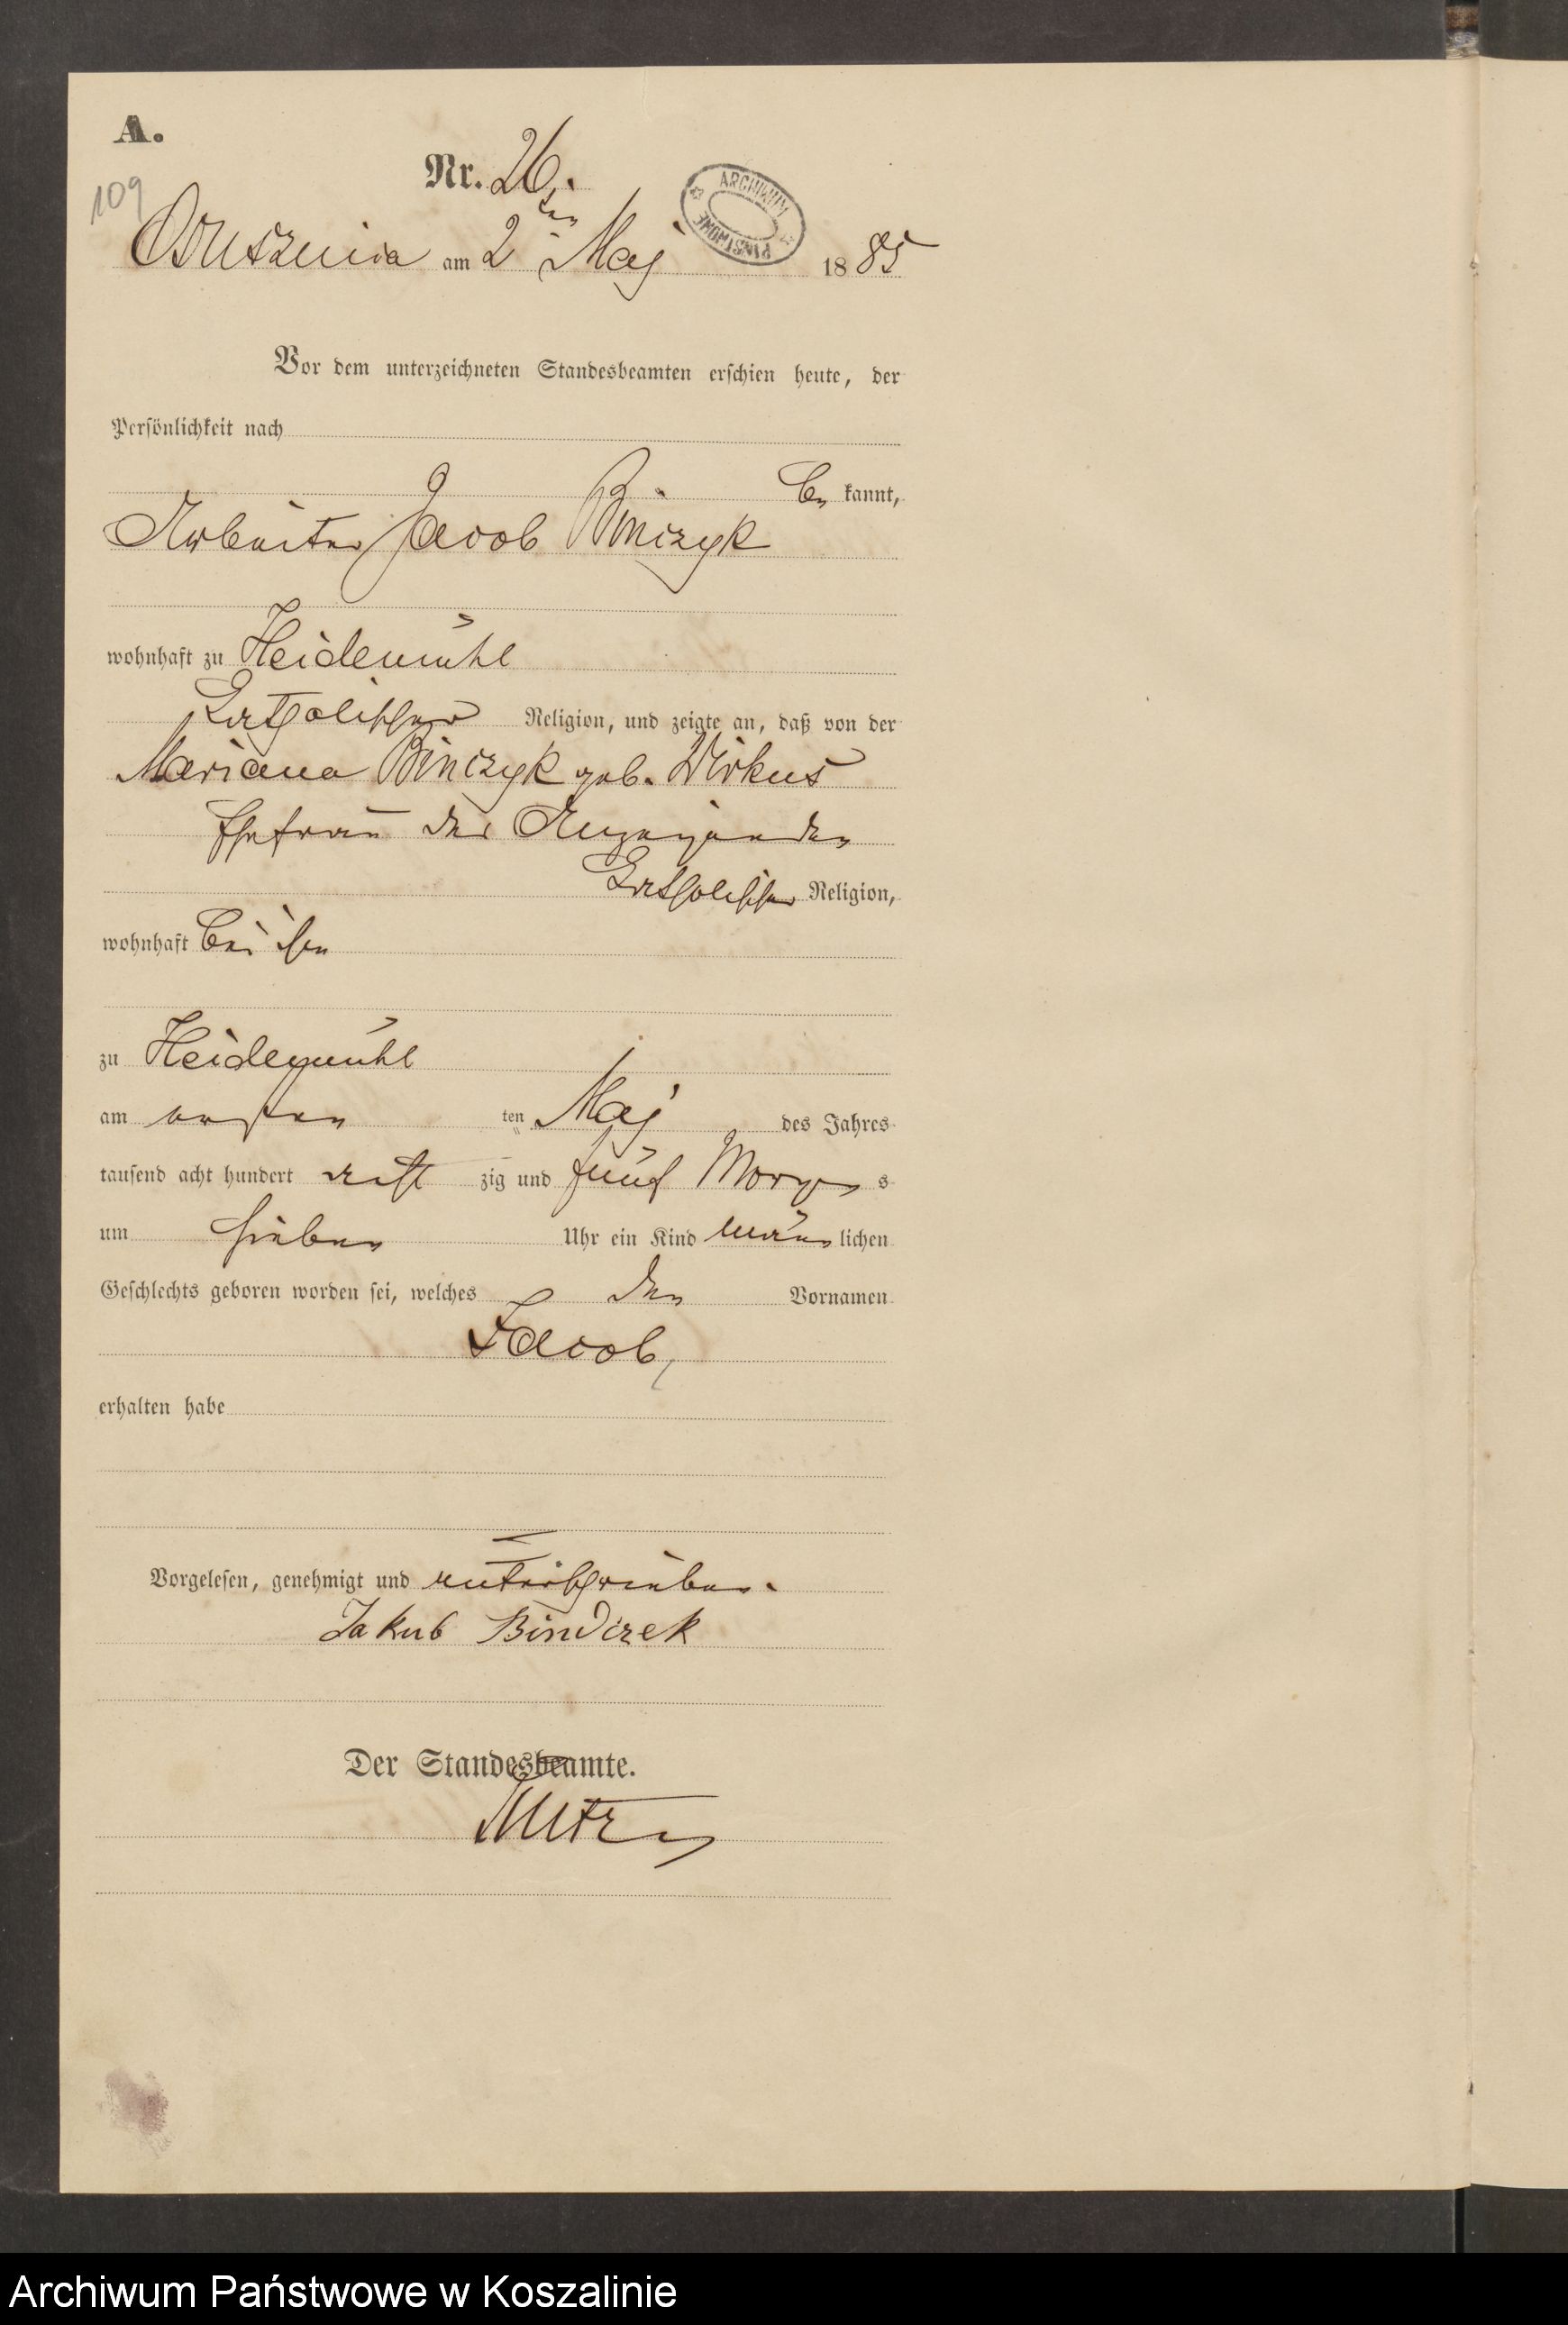 A.
109
Nr. 26.
ARCHIWUM PAŃSTWOWE
Ossusznica am 2ten Maj 1885
Vor dem unterzeichneten Standesbeamten erschien heute, der
Persönlichkeit nach
be kannt,
Arbeiter Jacob Binczyk
wohnhaft zu Heidemühl
katholischer Religion, und zeigte an, daß von der
Mariana Binczyk geb. Wirkus
Ehefrau des Anzeigenden
katholischer Religion,
wohnhaft bei ihm
zu Heidemühl
am ersten ten Maj des Jahres
tausend acht hundert acht zig und fünf Morgen s
um sieben Uhr ein Kind männ lichen
Geschlechts geboren worden sei, welches den Vornamen
Jacob,
erhalten habe
Vorgelesen, genehmigt und unterschrieben.
Jakub Bindczek
Der Standesbeamte.
Archiwum Państwowe w Koszalinie